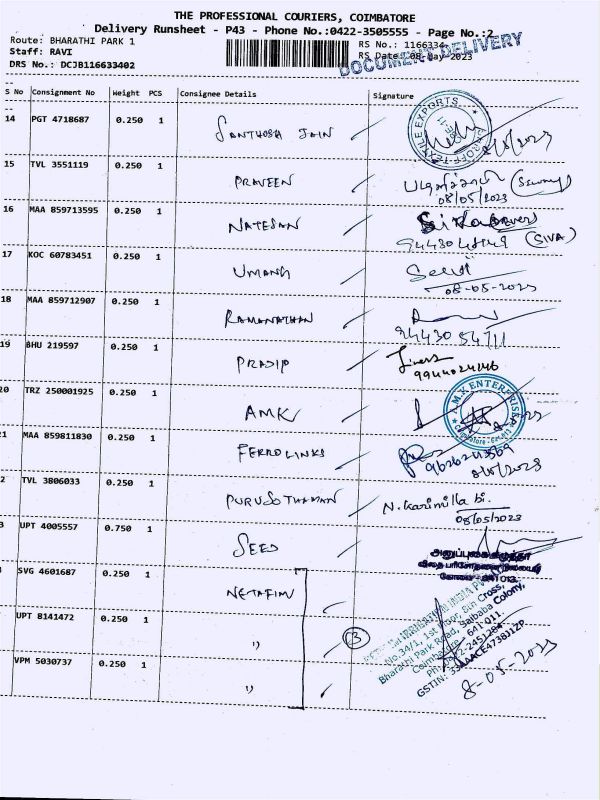 THE PROFESSIONAL COURIERS, COIMBATORE
Delivery Runsheet - P43 - Phone No.:0422-3505555 - Page No.:2
Route: BHARATHI PARK 1
RS No.: 1166334
Staff: RAVI
RS Date: 08-May-2023
DOCUMENT DELIVERY
DRS No.: DCJB116633402
S No Consignment No Weight PCS Consignee Details Signature
14 PGT 4718687 0.250 1 SANTHOSH JAIN
TEXTILE EXPORTS
15 TVL 3551119 0.250 1 PRAVEEN
08/05/2023
16 MAA 859713595 0.250 1 NATESAN
(SIVA)
17 KOC 60783451 0.250 1 UMANG
08-05-2023
18 MAA 859712907 0.250 1 RAMANATHAN
94430 54711
19 BHU 219597 0.250 1 PRADIP
9944024146
20 TRZ 250001925 0.250 1 AMK
A.M.K ENTERPRISE
1 MAA 859811830 0.250 1 FERROLINKS
8/5/2023
2 TVL 3806033 0.250 1 PURUSOTHAMAN N. Karimilla bi.
08/05/2023
3 UPT 4005557 0.750 1 SEED
விதை பரிசோதனை நிலையம்
கோவை - 641 013.
SVG 4601687 0.250 1 NETAFIM
UPT 8141472 0.250 1 "
3
No.34/1, 1st Floor, 8th Cross,
Bharathi Park Road, Saibaba Colony,
Coimbatore - 641 011.
VPM 5030737 0.250 1 "
8-05-2023